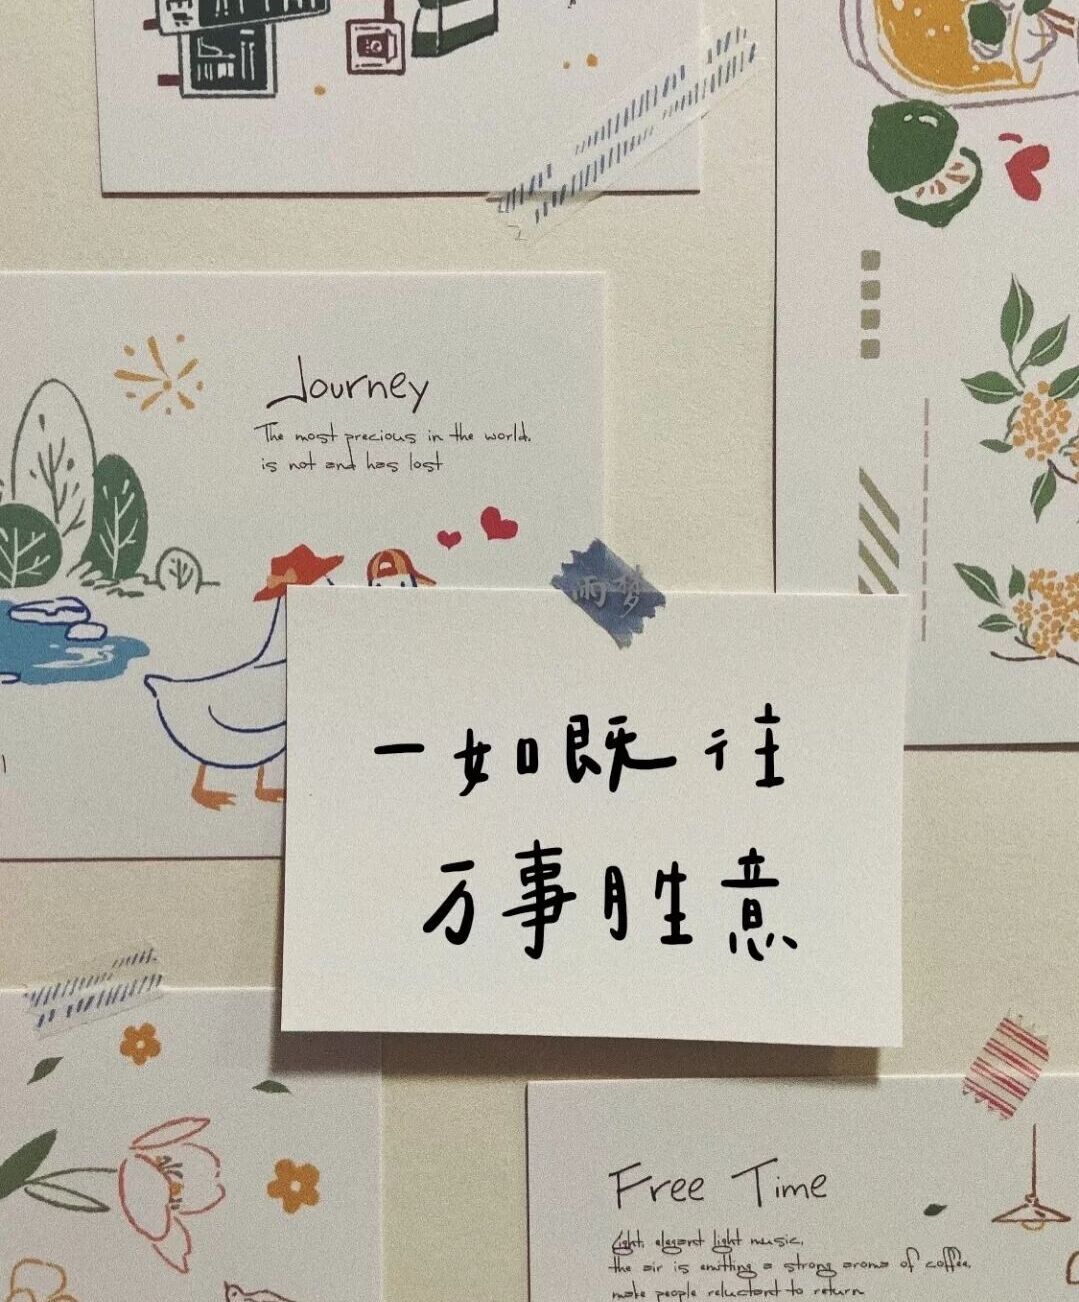 Journey
The most precious in the world.
is not and has lost
雨梦
一如既往
万事胜意
Free Time
Light, elegant light music,
the air is emitting a strong aroma of coffee,
make people reluctant to return